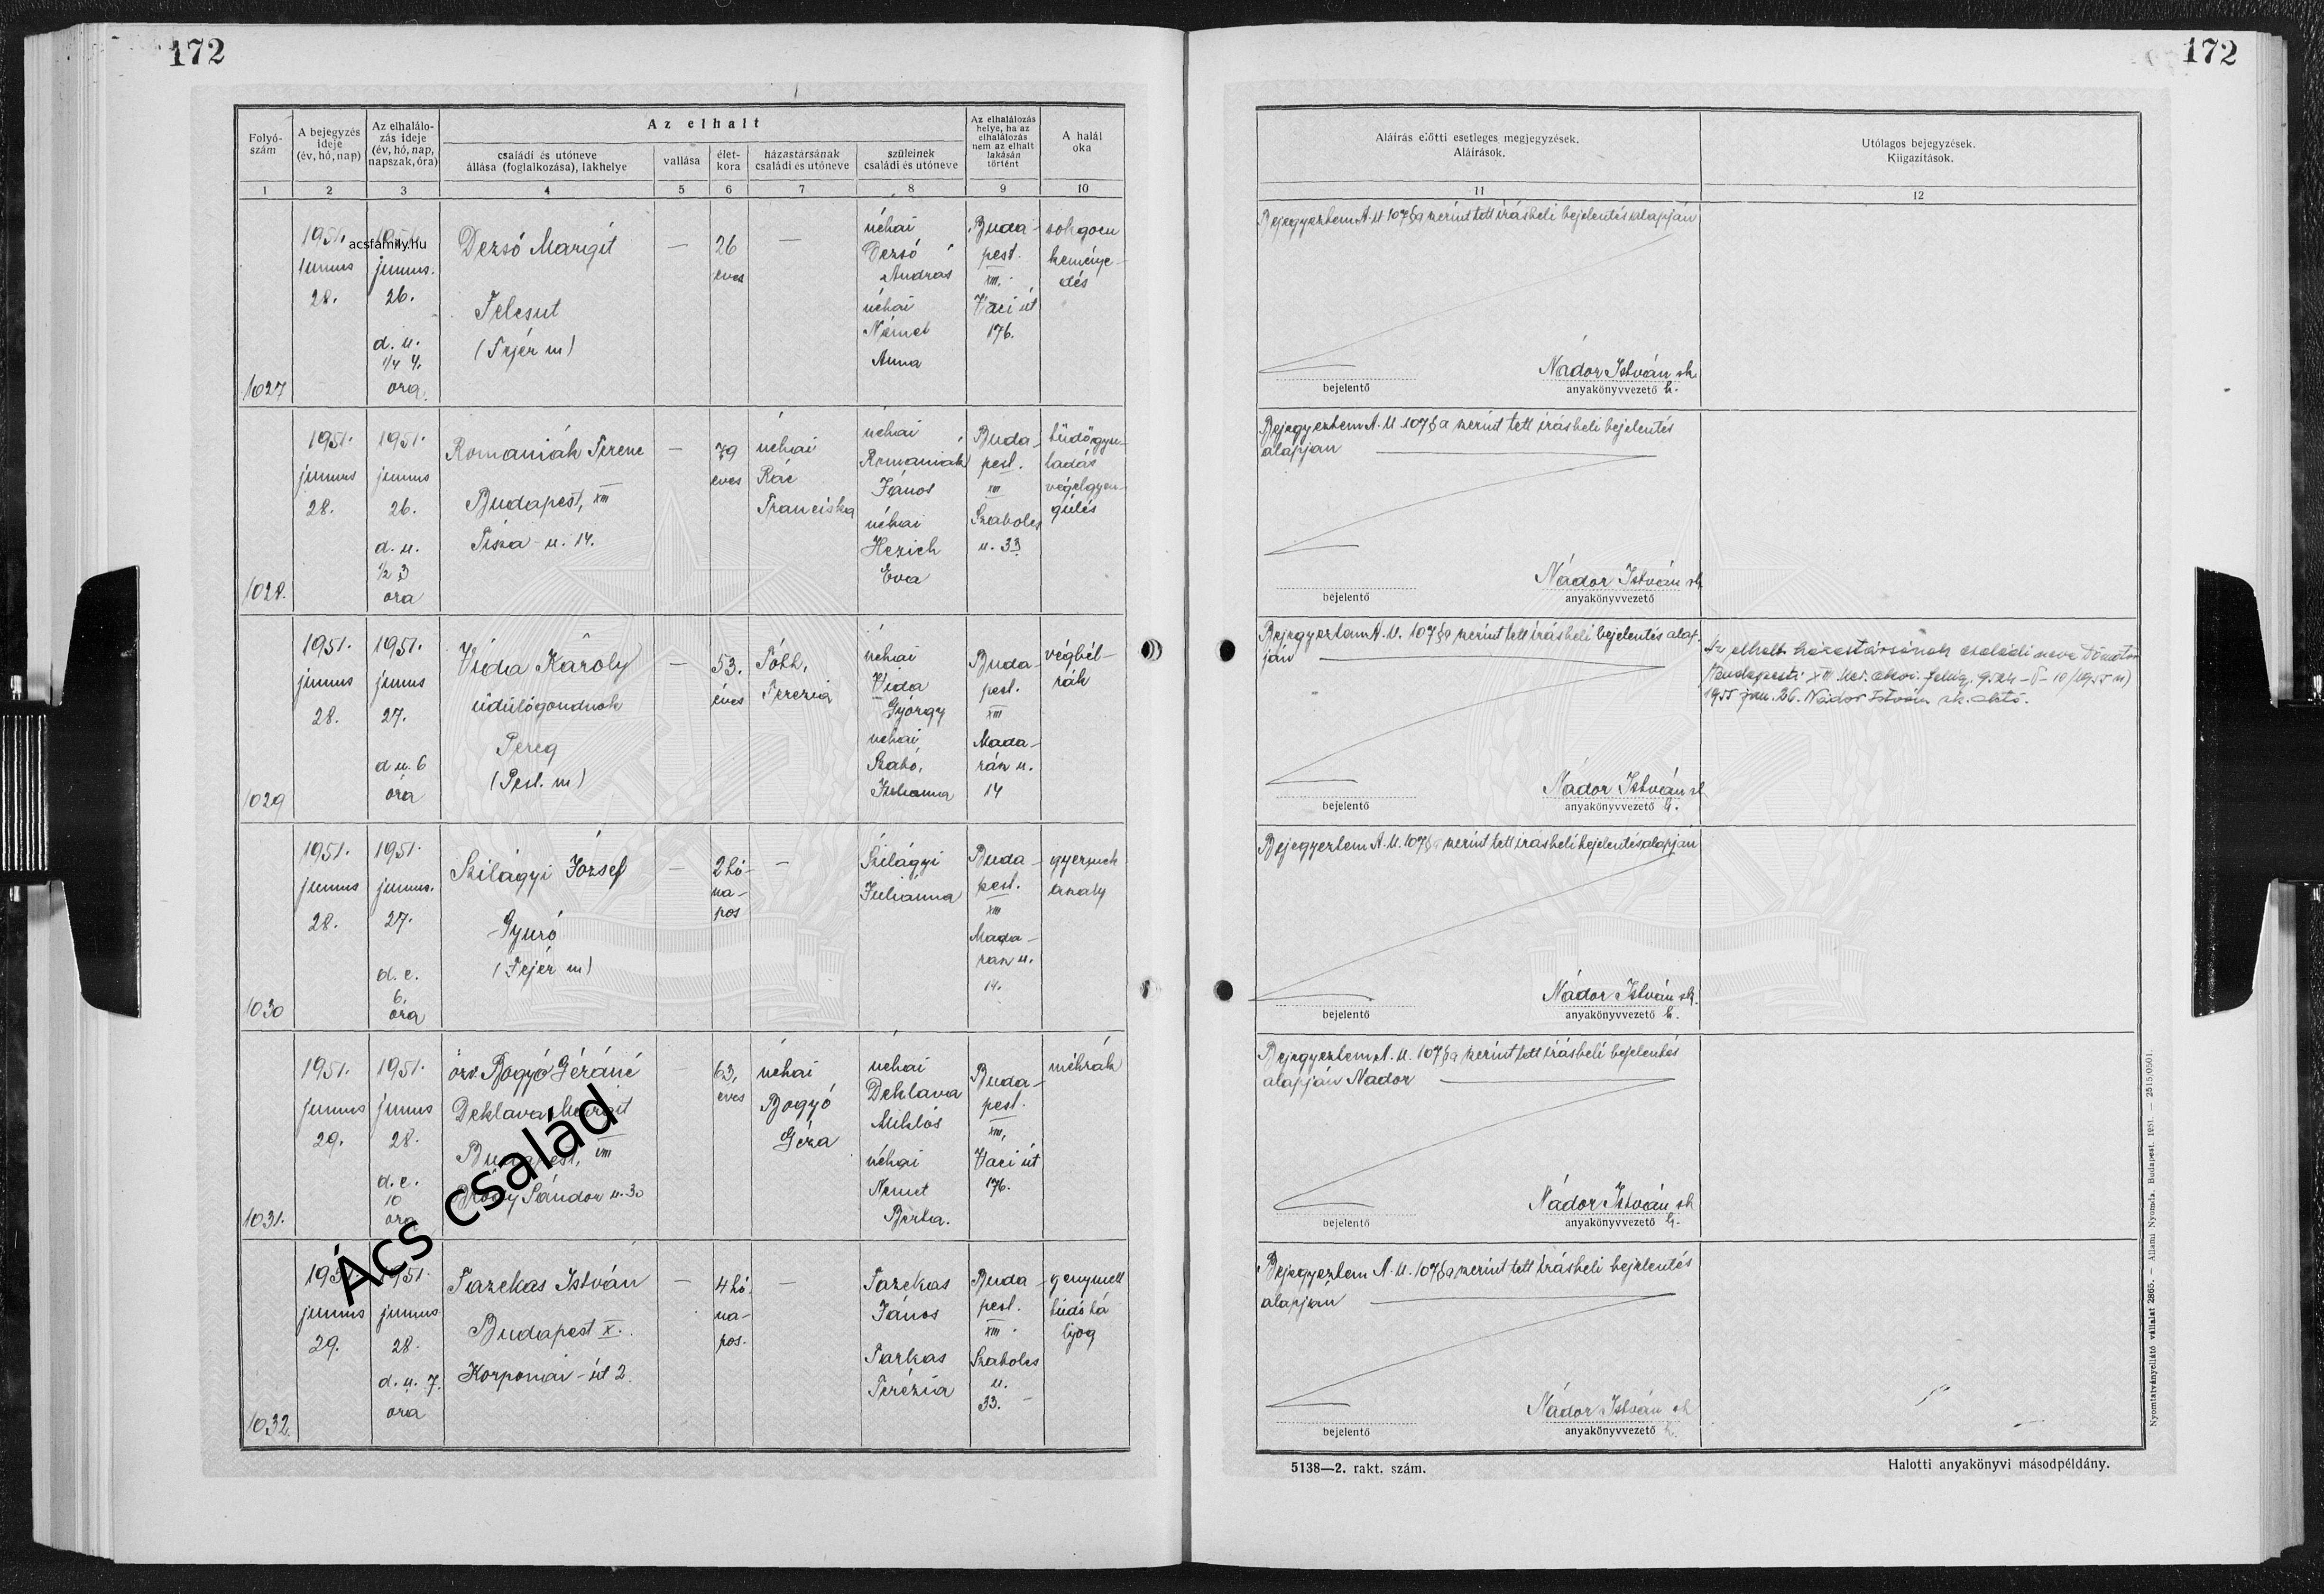 172
172
Folyó-
szám
A bejegyzés
ideje
(év, hó, nap)
Az elhalálo-
zás ideje
(év, hó, nap,
napszak, óra)
Az elhalt
családi és utóneve
állása (foglalkozása), lakhelye
vallása
élet-
kora
házastársának
családi és utóneve
szüleinek
családi és utóneve
Az elhalálozás
helye, ha az
elhalálozás
nem az elhalt
lakásán
történt
A halál
oka
1
2
3
4
5
6
7
8
9
10
1027
1951.
junius
28.
1951.
junius.
26.
d. u.
1/4 4.
óra.
acsfamily.hu
Dezsó Margit
Felcsut
(Fejér m)
—
26
éves
—
néhai
Dezsó
András
néhai
Német
Anna
Buda-
pest.
XIII.
Váci út
176.
sokgócu
keménye-
dés
1028.
1951.
junius
28.
1951.
junius
26.
d. u.
1/2 3
óra
Romaniák Ferenc
Budapest, XIII
Tisza u. 14.
—
79
éves
néhai
Rác
Franciska
néhai
Romaniák
János
néhai
Hezich
Éva
Buda-
pest.
XIII
Szabolcs
u. 33
tüdőgyu-
ladás
végelgyen-
gülés
1029
1951.
junius
28.
1951.
junius
27.
d u. 6
óra
Vida Károly
üdülőgondnok
Pereg
(Pest. m)
—
53.
éves
Tóth,
Terézia
néhai
Vida
György
néhai
Szabó,
Julianna
Buda-
pest.
XIII
Mada-
rász u.
14
végbél-
rák
1030
1951.
junius
28.
1951.
junius.
27.
d. e.
6.
óra
Szilágyi József
Gyuró
(Fejér m)
—
2 hó-
na-
pos
—
Szilágyi
Julianna
Buda-
pest.
XIII
Mada-
rász u.
14.
gyermek
aszály
1031.
1951.
junius
29.
1951.
junius
28.
d. e.
10
óra
özv. Bogyó Gézáné
Deklava Margit
Budapest, VIII
Bródy Sándor u. 30
63.
éves
néhai
Bogyó
Géza
néhai
Deklava
Miklós
néhai
Német
Berta.
Buda-
pest.
XIII,
Váci út
176.
méhrák
Ács család
1032.
1951.
junius
29.
1951.
junius
28.
d. u. 7.
óra
Fazekas István
Budapest X.
Korponai-út 2.
—
4 hó-
na-
pos.
—
Fazekas
János
Farkas
Terézia
Buda-
pest.
XIII.
Szabolcs
u.
33.
genymell
tüdőtá
lyog
Aláírás előtti esetleges megjegyzések.
Aláírások.
Utólagos bejegyzések.
Kiigazítások.
11
12
Bejegyeztem A. U. 107§a szerint tett írásbeli bejelentés alapján
Nádor István sk.
bejelentő
anyakönyvvezető h.
Bejegyeztem A. U. 107§a szerint tett írásbeli bejelentés
alapján
Nádor István sk
bejelentő
anyakönyvvezető
Bejegyeztem A. U. 107§a szerint tett írásbeli bejelentés alap-
ján
Nádor István sk
bejelentő
anyakönyvvezető h.
Az elhalt házastársának családi neve
1955 jan. 26. Nádor István sk.
Bejegyeztem A. U. 107§a szerint tett írásbeli bejelentés alapján
Nádor István sk.
bejelentő
anyakönyvvezető h.
Bejegyeztem A. U. 107§a szerint tett írásbeli bejelentés
alapján Nádor
Nádor István sk
bejelentő
anyakönyvvezető h.
Bejegyeztem A. U. 107§a szerint tett írásbeli bejelentés
alapján
Nádor István sk
bejelentő
anyakönyvvezető h.
5138—2. rakt. szám.
Halotti anyakönyvi másodpéldány.
Nyomtatványellátó vállalat 2865. — Állami Nyomda. Budapest. 1951. — 2515/0501.